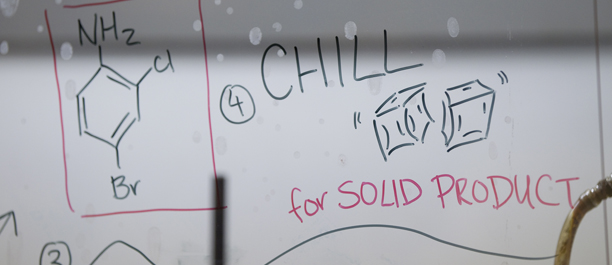 NH2
Cl
Br
④ CHILL
" "
for SOLID PRODUCT
③